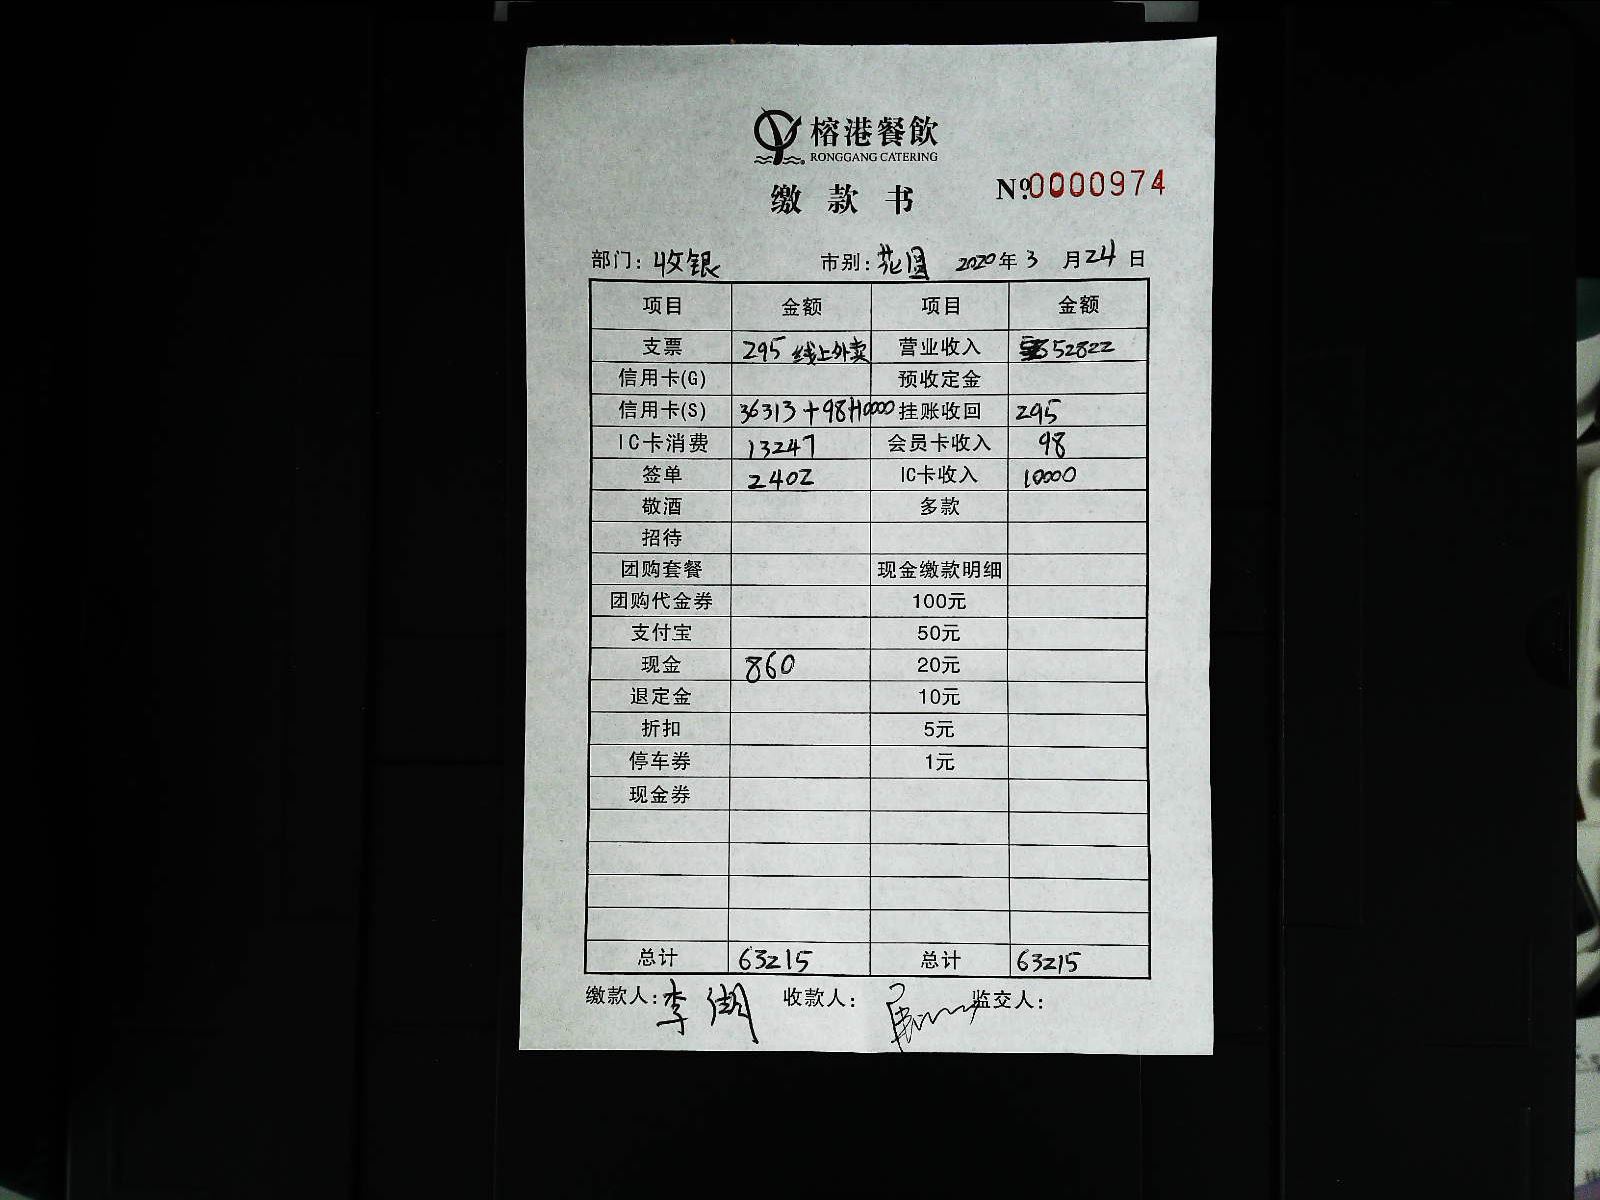 榕港餐飲
RONGGANG CATERING
缴款书
№:0000974
部门: 收银 市别: 花园 2020年3月24日
项目 金额 项目 金额
支票 295 线上外卖 营业收入 52822
信用卡(G) 预收定金
信用卡(S) 36313+98+10000 挂账收回 295
IC卡消费 13247 会员卡收入 98
签单 2402 IC卡收入 10000
敬酒 多款
招待
团购套餐 现金缴款明细
团购代金券 100元
支付宝 50元
现金 860 20元
退定金 10元
折扣 5元
停车券 1元
现金券
总计 63215 总计 63215
缴款人: 李 收款人: 监交人: